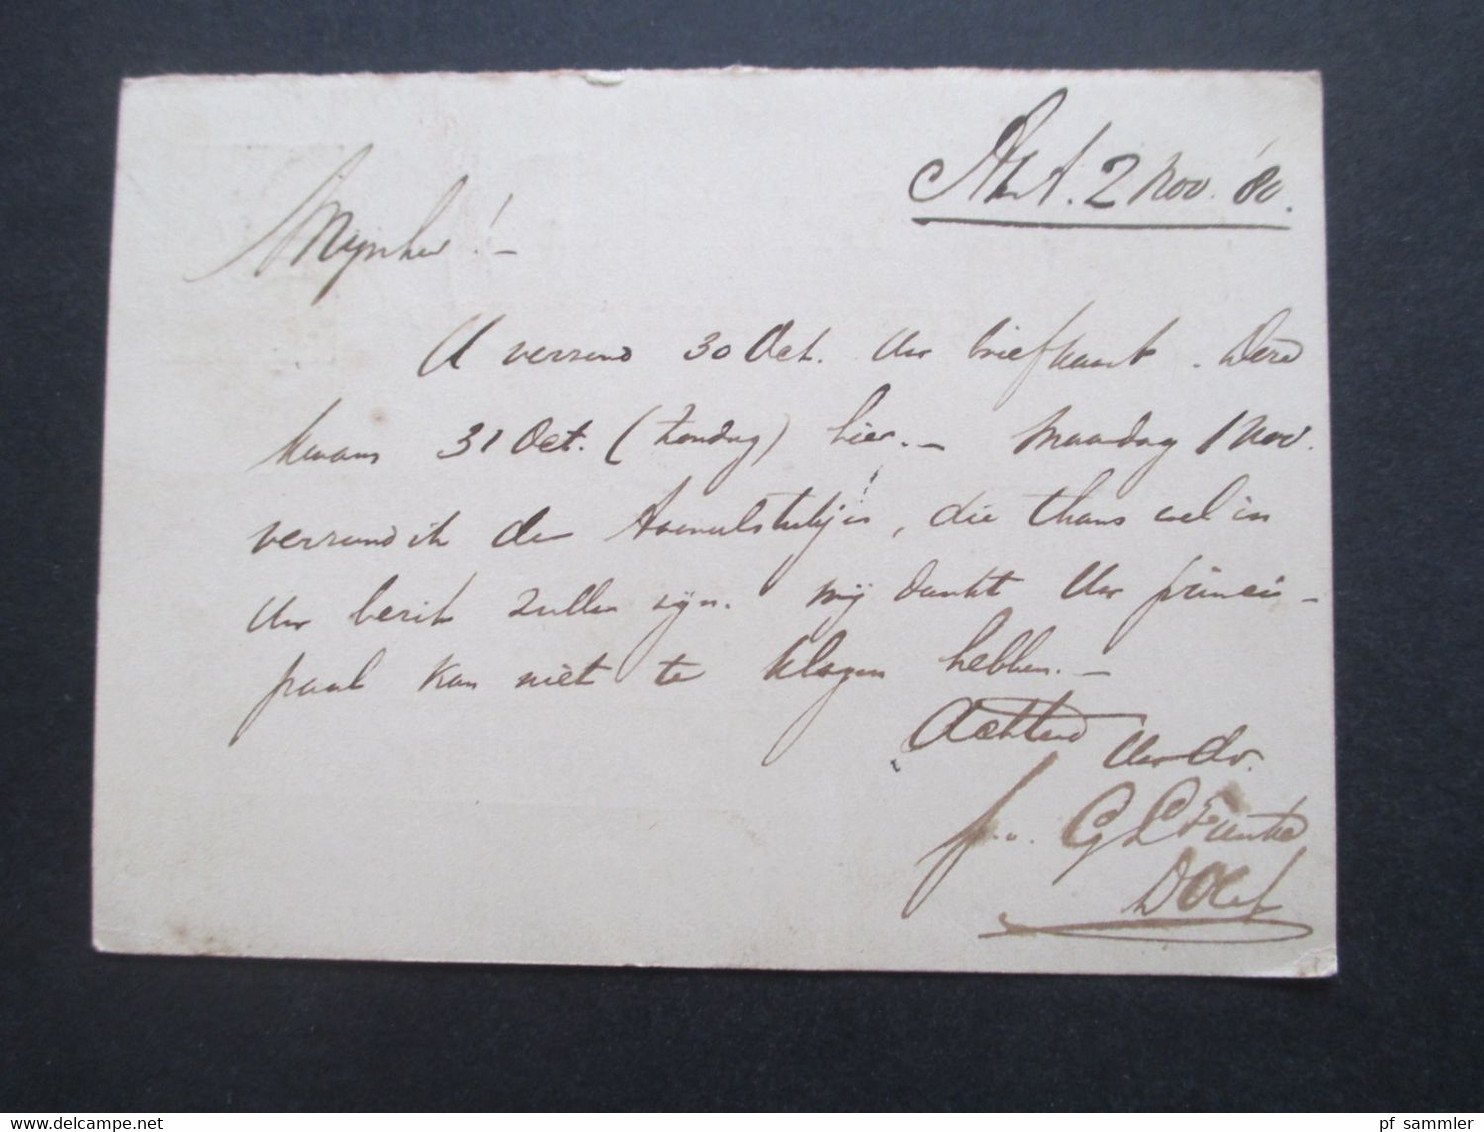 2 Nov. '80.
Mijnheer! -
U verzend 30 Oct. Uw briefkaart. Deze
kwam 31 Oct. (Zondag) hier. - Maandag 1 Nov.
verzend ik de, die thans wel in
Uw bezit zullen zijn. Mij dunkt Uw princi-
paal kan niet te klagen hebben. -
Achtend Uw dv.
G L Funke
pf_sammler
www.delcampe.net